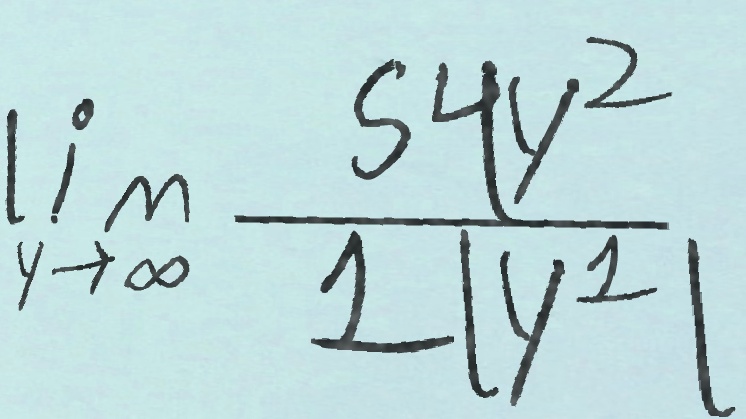 lim y→∞ \frac{54y^2}{1|y^1|}